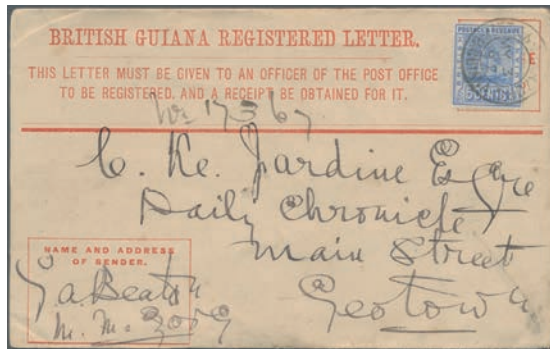 BRITISH GUIANA REGISTERED LETTER.
THIS LETTER MUST BE GIVEN TO AN OFFICER OF THE POST OFFICE
TO BE REGISTERED, AND A RECEIPT BE OBTAINED FOR IT.
POSTAGE & REVENUE
C. Ke. Jardine Esqre
Daily Chronicle
Main Street
Geotown
NAME AND ADDRESS
OF SENDER.